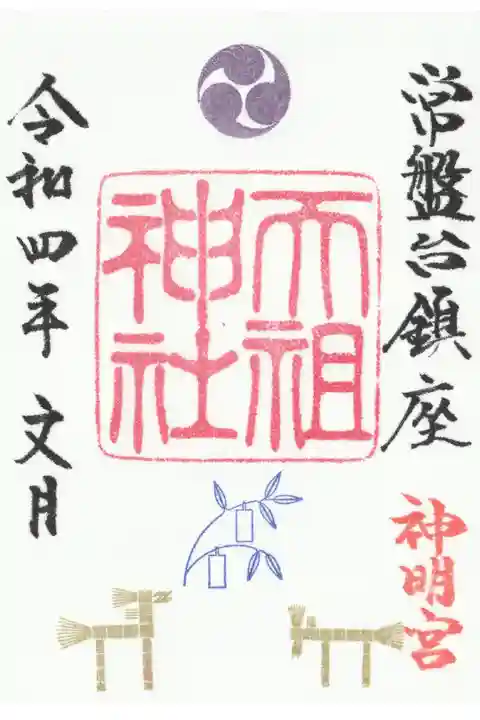 常盤台鎮座
神明宮
天祖
神社
令和四年 文月